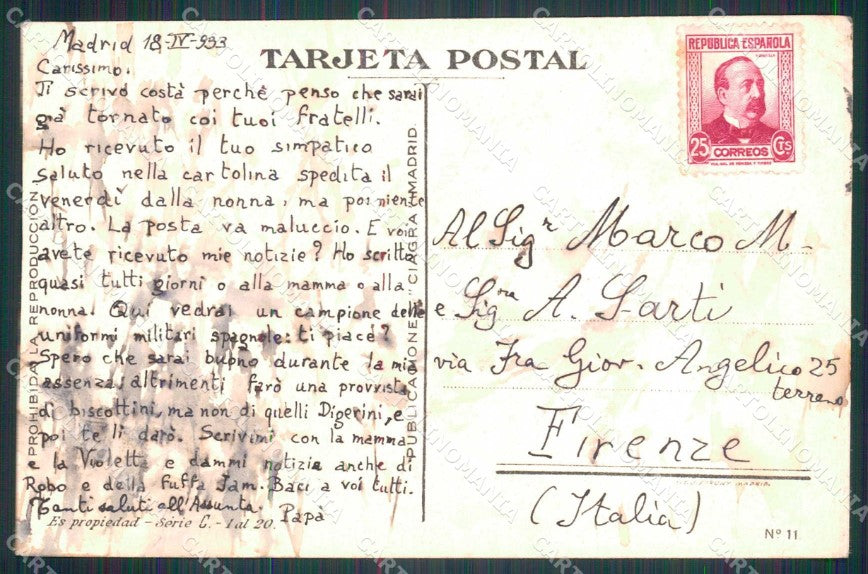 Madrid 18-IV-933
Carissimo.
Ti scrivo costà perchè penso che sarai
già tornato coi tuoi fratelli.
Ho ricevuto il tuo simpatico
saluto nella cartolina spedita il
venerdì dalla nonna, ma poi niente
altro. La posta va maluccio. E voi
avete ricevuto mie notizie? Ho scritto
quasi tutti giorni o alla mamma o alla
nonna. Qui vedrai un campione delle
uniformi militari spagnole: ti piace?
Spero che sarai buono durante la mia
assenza; altrimenti farò una provvista
di biscottini, ma non di quelli Digerini, e
poi te li darò. Scrivimi con la mamma
e la Violetta e dammi notizie anche di
Robo e della fuffa Jam. Baci a voi tutti.
Tanti saluti all'Assunta. Papà
Es propiedad - Série C. - 1 al 20.
PROHIBIDA LA REPRODUCCION
TARJETA POSTAL
PUBLICACIONES "CIAGRA" MADRID
REPÚBLICA ESPAÑOLA
25 CORREOS CTS
Al Sigr Marco M-
e Sigra A. Sarti
via Fra Giov. Angelico 25
terreno
Firenze
(Italia)
Nº 11
CARTOLINOMANIA